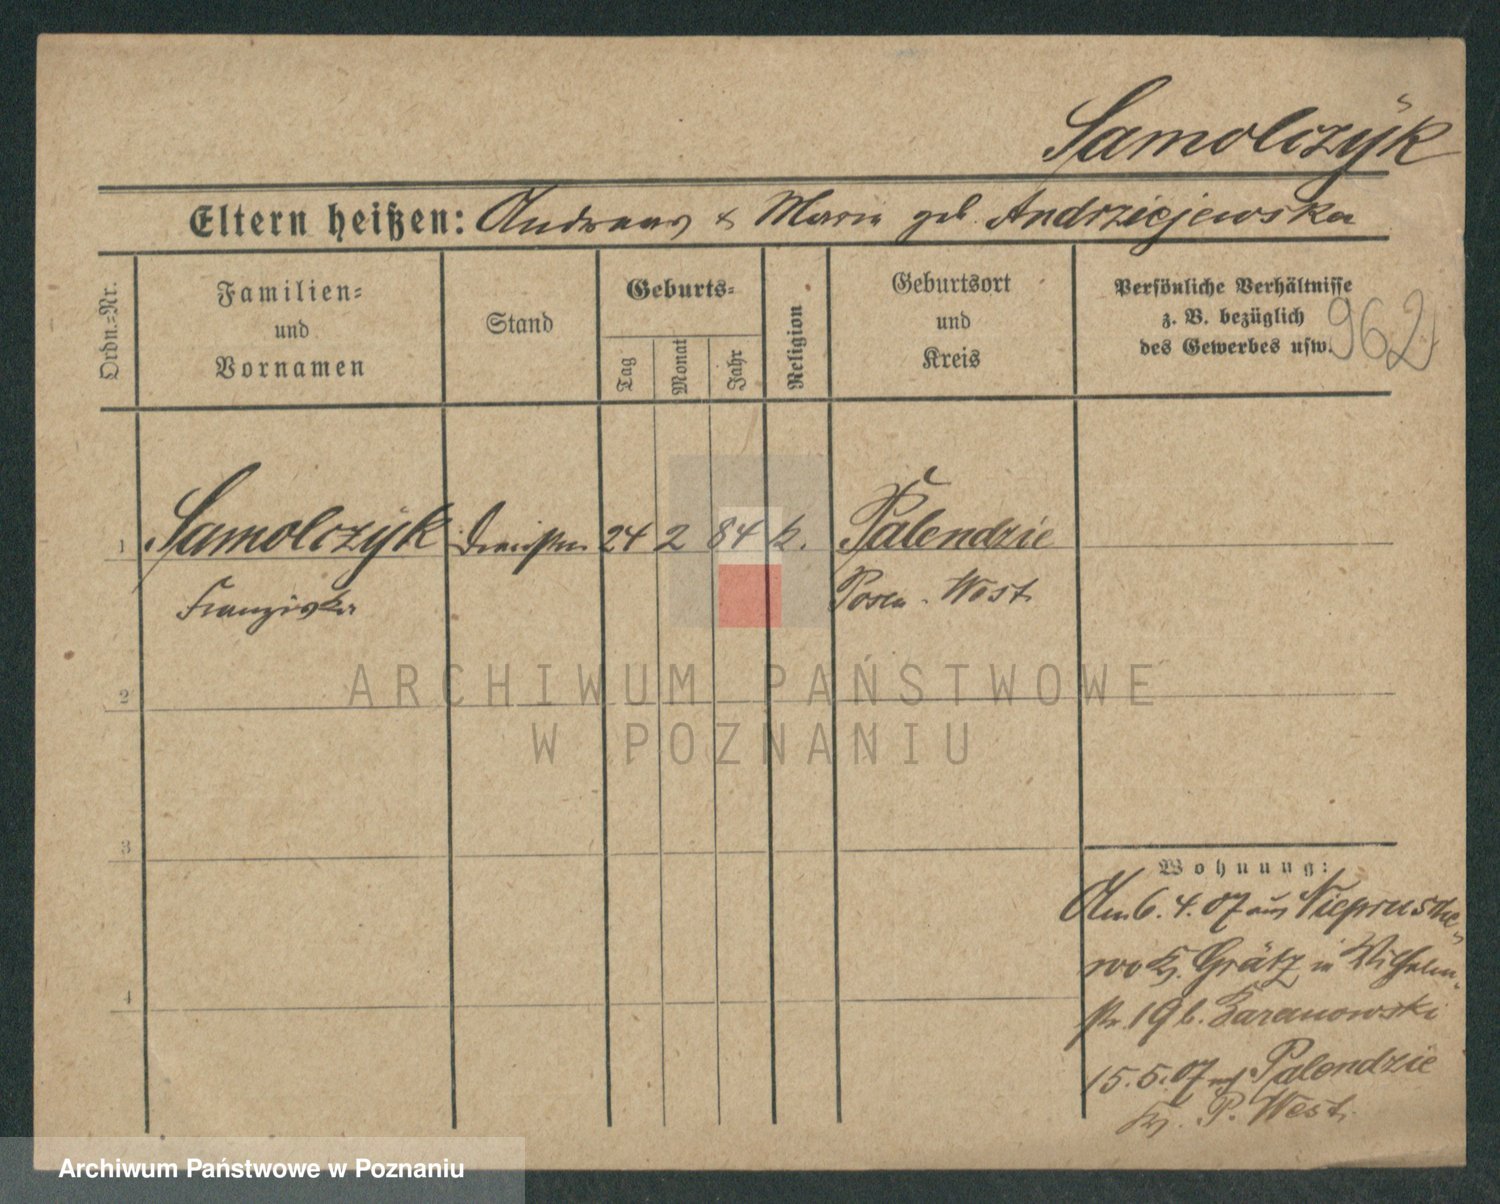 Samolczÿk
Eltern heißen: Andreas & Maria geb. Andrziejewska
Ordn.-Nr.
Familien-
und
Vornamen
Stand
Geburts-
Tag
Monat
Jahr
Religion
Geburtsort
und
Kreis
Persönliche Verhältnisse
z. B. bezüglich
des Gewerbes usw.
962
1 Samolczÿk 24 2 84 k. Palendzie
Franziska Posen-West.
2
3
4
ARCHIWUM PAŃSTWOWE
W POZNANIU
Wohnung:
Am 6. 4. 07 aus Nieprusche-
wo Kr. Grätz in Wilhelm-
str. 19 b. Baranowski
15.5.07 nach Palendzie
Kr. P. West.
Archiwum Państwowe w Poznaniu